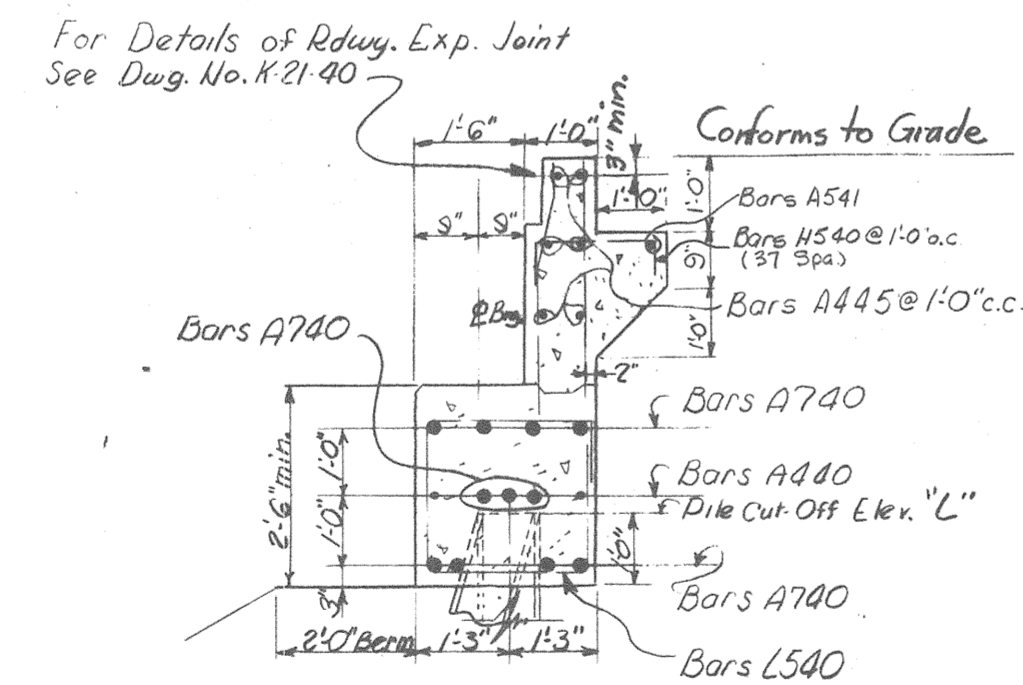 For Details of Rdwy. Exp. Joint
See Dwg. No. K-21-40
1'-6"
1'-0"
3" min.
Conforms to Grade
1'-0"
1'-0"
Bars A541
9"
9"
Bars H540 @ 1'-0" o.c.
(37 Spa.)
9"
Bars A445 @ 1'-0" c.c.
℄ Brg.
Bars A740
1'-0"
2"
Bars A740
2'-6" min.
1'-0"
Bars A440
Pile Cut-Off Elev. "L"
1'-0"
1'-0"
Bars A740
3"
2'-0" Berm
1'-3"
1'-3"
Bars L540